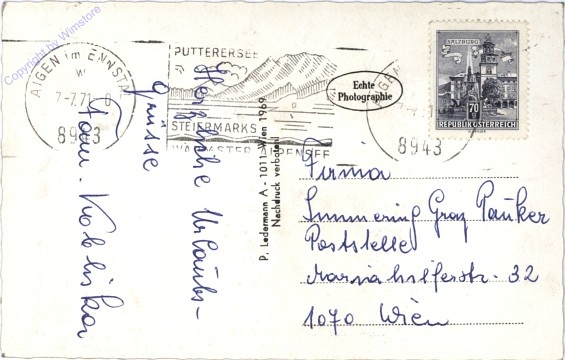 Copyright by Wimstore
AIGEN im ENNSTAL
7-7.71-8
8943
PUTTERERSEE
STEIERMARKS
WÄRMSTER ALPENSEE
Echte
Photographie
AIGEN
8943
SALZBURG
70
REPUBLIK ÖSTERREICH
Herzliche Urlaubs-
grüsse
Fam.
P. Ledermann A - 1011 Wien 1969
Nachdruck verboten!
Firma
Simmering Graz Pauker
Poststelle
Mariahilferstr. 32
1070 Wien